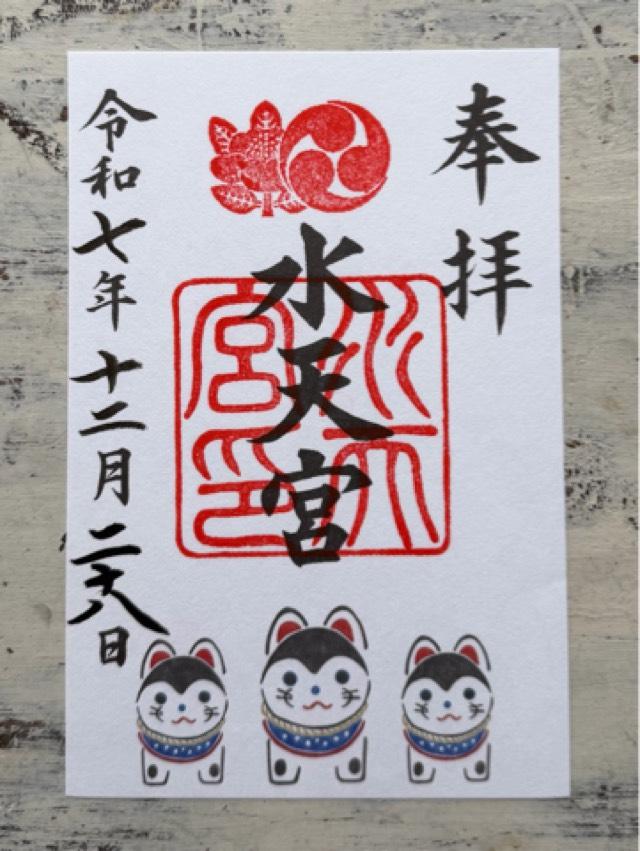 奉拝
水天宮
水天宮印
令和七年十二月二十八日